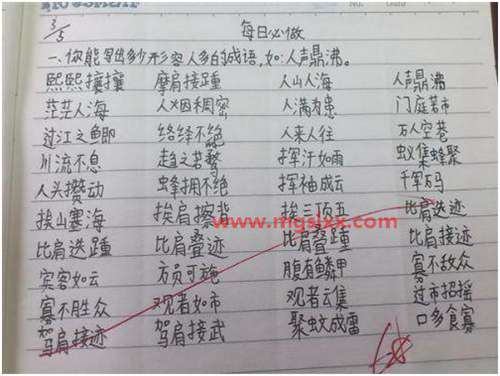 3/5
每日必做
一、你能写出多少形容人多的成语,如:人声鼎沸。
熙熙攘攘 摩肩接踵 人山人海 人声鼎沸
茫茫人海 人烟稠密 人满为患 门庭若市
过江之鲫 络绎不绝 人来人往 万人空巷
川流不息 趋之若鹜 挥汗如雨 蚁集蜂聚
人头攒动 蜂拥不绝 挥袖成云 千军万马
挨山塞海 挨肩擦背 挨三顶五 比肩迭迹
www.mgsixx.com
比肩迭踵 比肩叠迹 比肩叠踵 比肩接迹
宾客如云 方员可施 腹有鳞甲 寡不敌众
寡不胜众 观者如市 观者云集 过市招摇
驾肩接迹 驾肩接武 聚蚊成雷 口多食寡